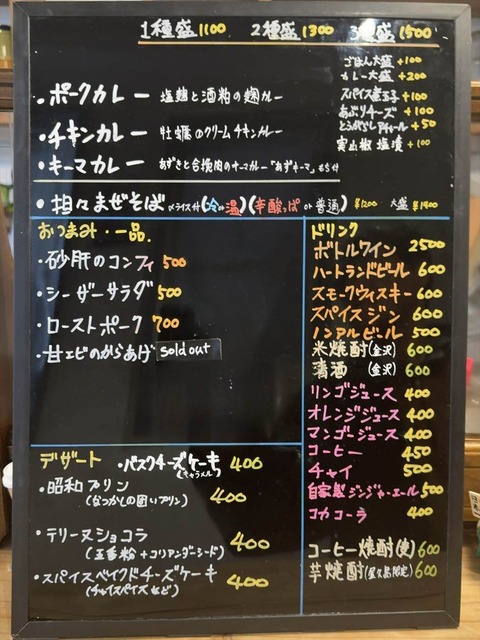 1種盛 1100 2種盛 1300 3種盛 1500
ごはん大盛 +100
カレー大盛 +200
スパイス煮玉子 +100
あぶりチーズ +100
とうがらしアチャール +50
実山椒塩漬 +100
・ポークカレー 塩麹と酒粕の麹カレー
・チキンカレー 牡蠣のクリームチキンカレー
・キーマカレー あずきと合挽肉のキーマカレー「あずキーマ」もち付
・担々まぜそば 〆ライス付 (冷or温) (辛酸っぱ or 普通) ¥1200 大盛 ¥1400
おつまみ・一品.
・砂肝のコンフィ 500
・シーザーサラダ 500
・ローストポーク 700
・甘エビのからあげ sold out
ドリンク
ボトルワイン 2500
ハートランドビール 600
スモークウィスキー 600
スパイスジン 600
ノンアルビール 500
米焼酎(金沢) 600
清酒 (金沢) 600
リンゴジュース 400
オレンジジュース 400
マンゴージュース 400
コーヒー 450
チャイ 500
自家製ジンジャーエール 500
コカコーラ 400
コーヒー焼酎(麦) 600
芋焼酎(屋久島限定) 600
デザート ・バスクチーズケーキ 400
(キャラメル)
・昭和プリン
(なつかしの固いプリン) 400
・テリーヌショコラ
(五香粉+コリアンダーシード) 400
・スパイスベイクドチーズケーキ
(チャイスパイスなど) 400